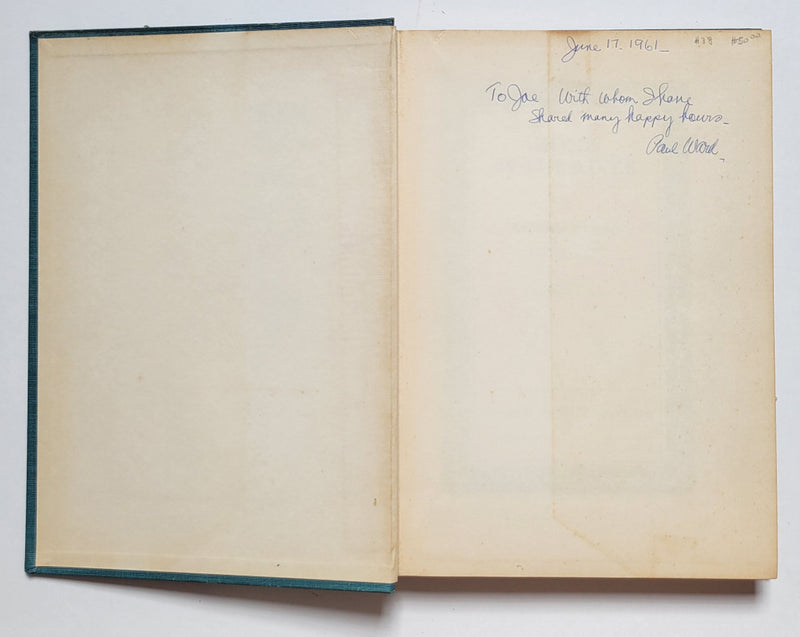 June 17. 1961_
#38 #50.00
To Joe With whom I have
Shared many happy hours_
Paul Ward.